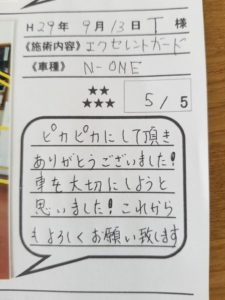 H29年 9月13日 T 様
《施術内容》エクセレントガード
《車種》 N-ONE
★★
★★★ 5 / 5
ピカピカにして頂き
ありがとうございました!
車を大切にしようと
思いました!これから
もよろしくお願い致します